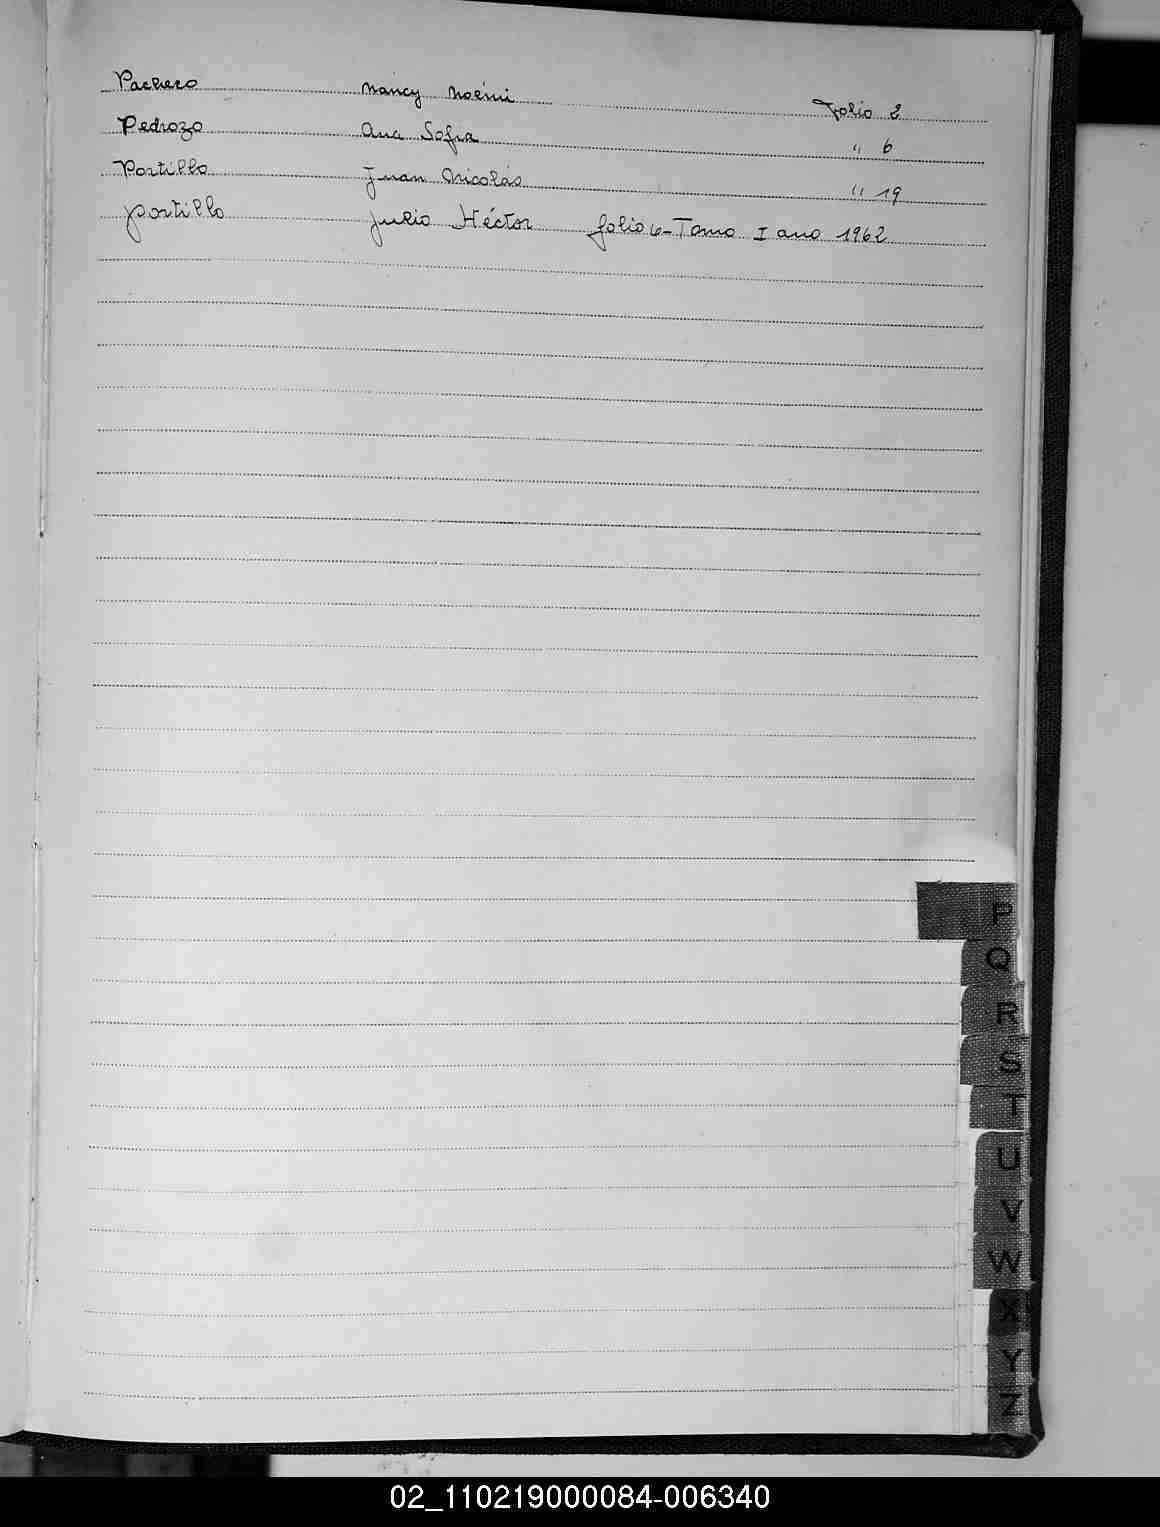 Pacheco Nancy Noemi folio 2
Pedrozo Ana Sofia " 6
Portillo Juan Nicolás " 19
Portillo Julio Héctor folio 6-Tomo I ano 1962
P
Q
R
S
T
U
V
W
X
Y
Z
02_110219000084-006340